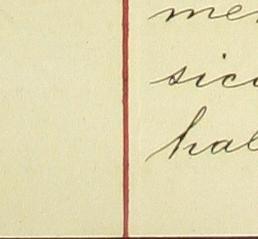 me
sic
hal